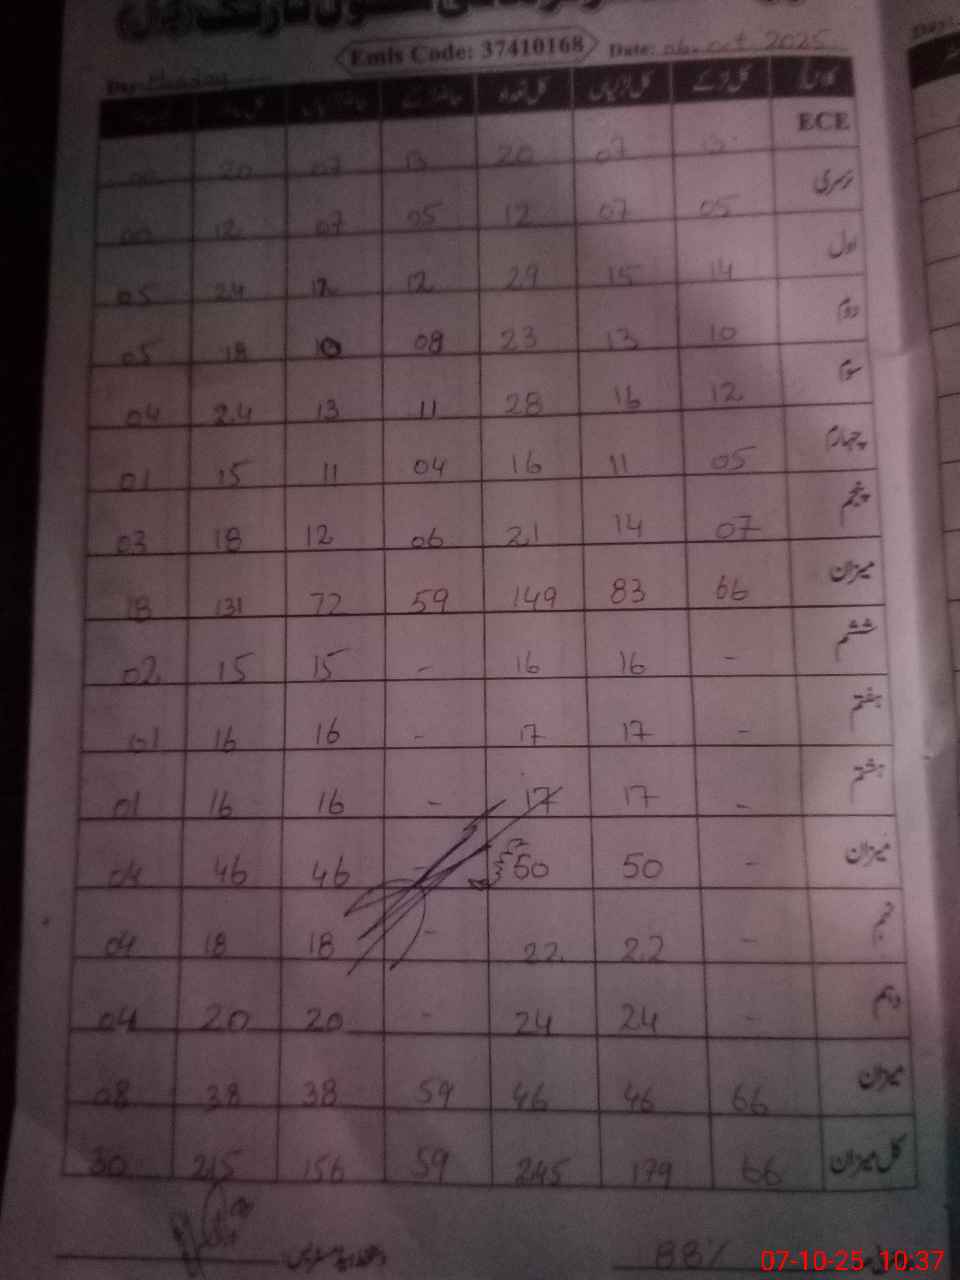 Emis Code: 37410168 Date: 06. oct 2025
Day: Monday
کلاس کل لڑکے کل لڑکیاں کل تعداد حاضر لڑکے حاضر لڑکیاں
ECE 13 07 20 13 07 20 00
نرسری 05 07 12 05 07 12 00
اول 14 15 29 12 12 24 05
دوم 10 13 23 08 10 18 05
سوم 12 16 28 11 13 24 04
چہارم 05 11 16 04 11 15 01
پنجم 07 14 21 06 12 18 03
میزان 66 83 149 59 72 131 18
ششم - 16 16 - 15 15 02
ہفتم - 17 17 - 16 16 01
ہشتم - 17 17 - 16 16 01
میزان - 50 50 - 46 46 04
نہم - 22 22 - 18 18 04
دہم - 24 24 - 20 20 04
میزان 66 46 46 59 38 38 08
کل میزان 66 179 245 59 156 215 30
88%
07-10-25 10:37